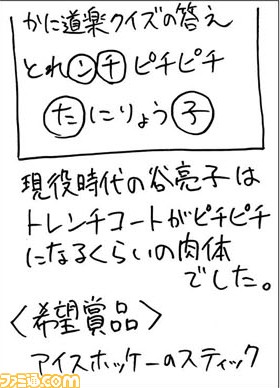 かに道楽クイズの答え
とれンチピチピチ
たにりょう子
現役時代の谷亮子は
トレンチコートがピチピチ
になるくらいの肉体
でした。
〈希望賞品〉
アイスホッケーのスティック
ファミ通.com